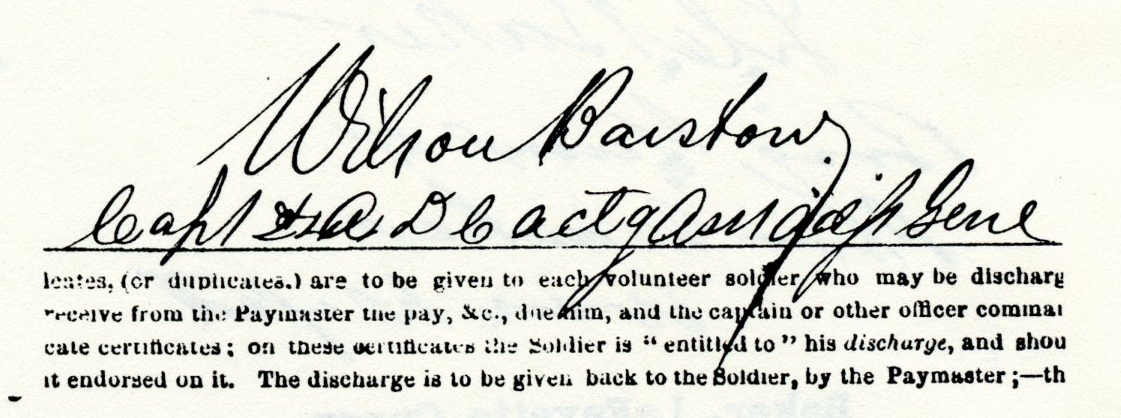 Wilson Barstow
Capt & A D C actg Asst adjt Genl
icates, (or duplicates.) are to be given to each volunteer soldier who may be discharg
receive from the Paymaster the pay, &c., due him, and the captain or other officer comman
cate certificates; on these certificates the Soldier is “entitled to” his discharge, and shou
it endorsed on it. The discharge is to be given back to the Soldier, by the Paymaster;—th